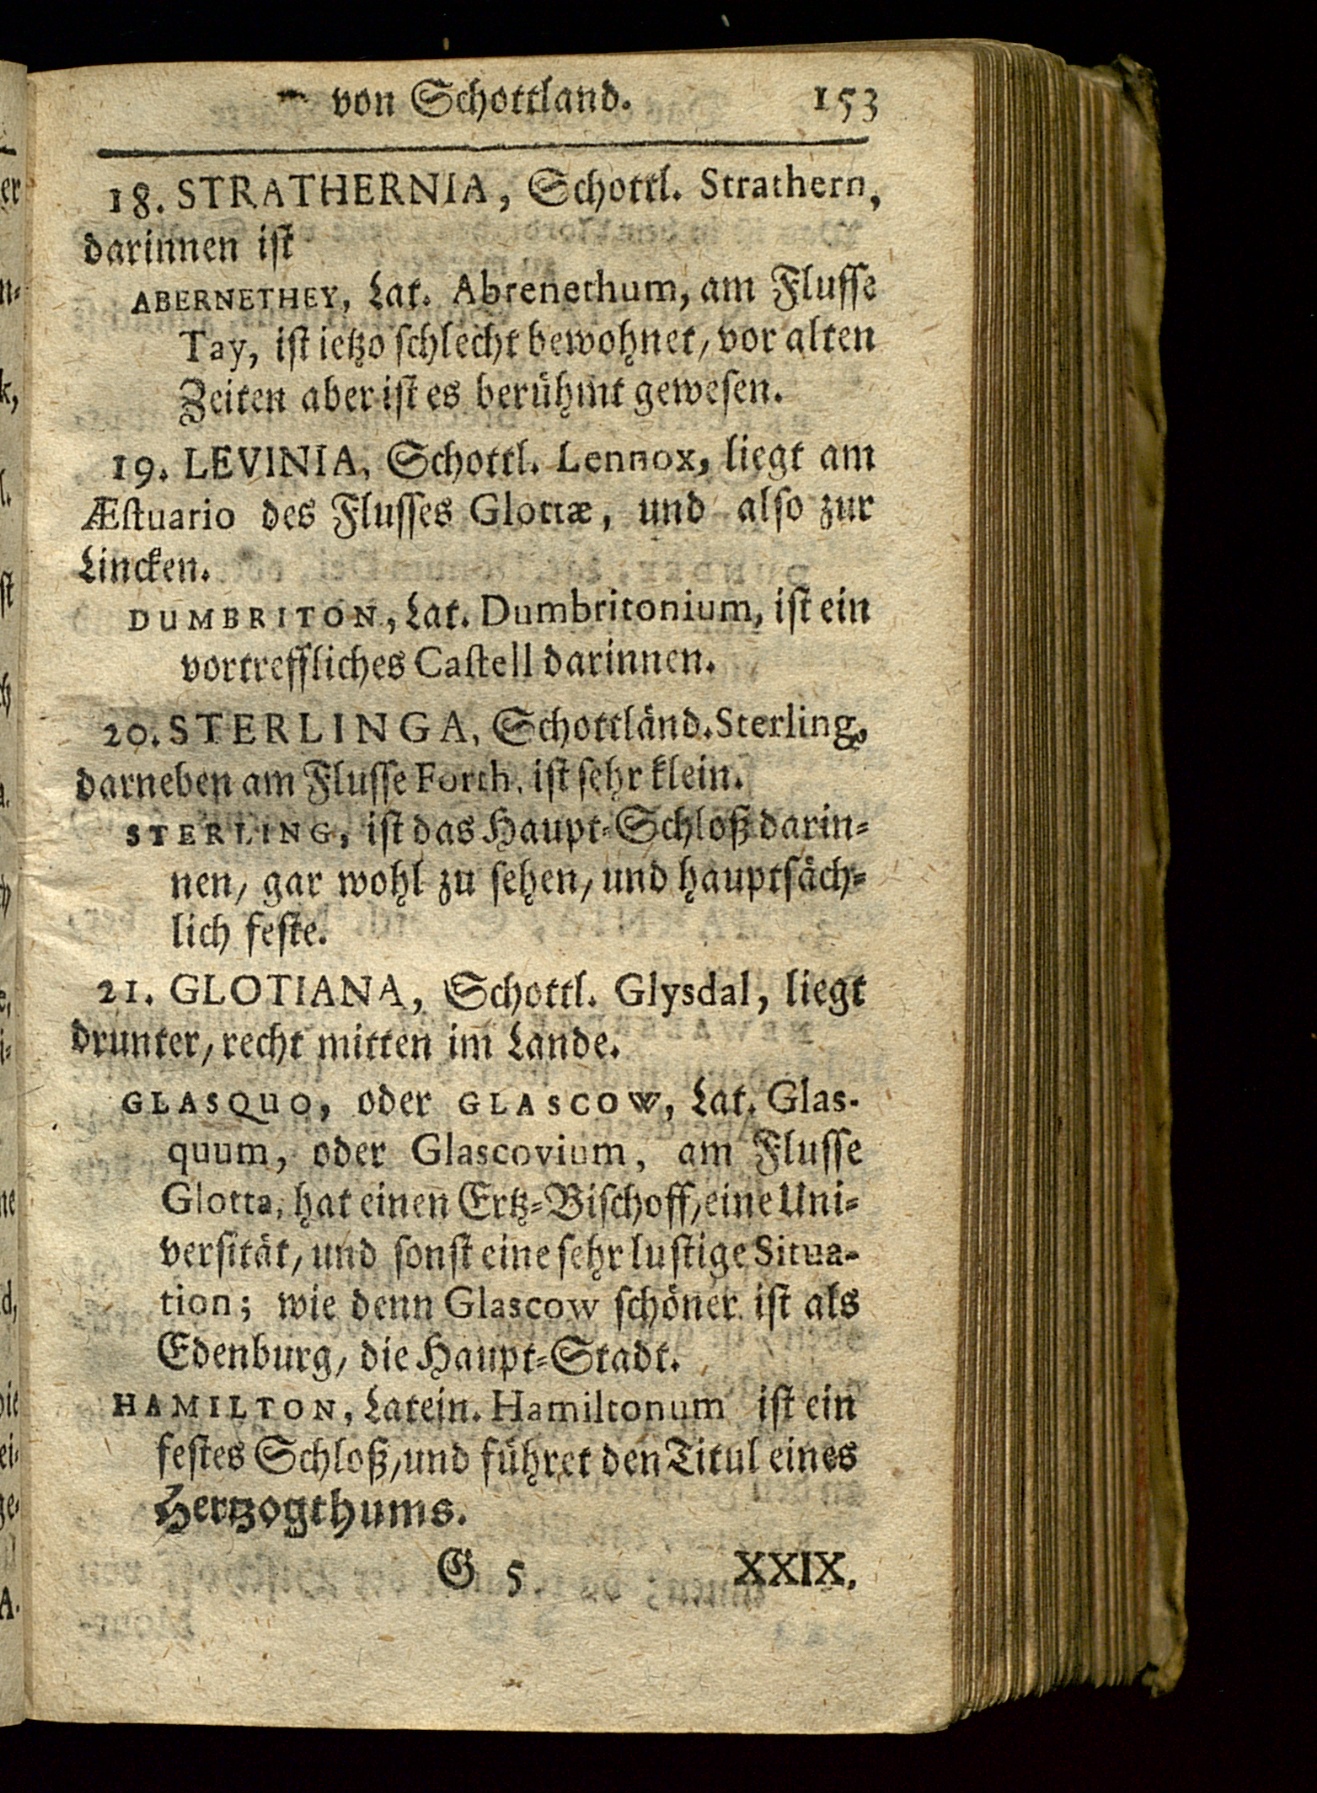 von Schottland. 153
18. STRATHERNIA, Schottl. Strathern,
darinnen ist
ABERNETHEY, Lat. Abrenethum, am Flusse
Tay, ist ietzo schlecht bewohnet/ vor alten
Zeiten aber ist es berühmt gewesen.
19. LEVINIA, Schottl. Lennox, liegt am
Æstuario des Flusses Glottæ, und also zur
Lincken.
DUMBRITON, Lat. Dumbritonium, ist ein
vortreffliches Castell darinnen.
20. STERLINGA, Schottländ. Sterling,
darneben am Flusse Forth, ist sehr klein.
STERLING, ist das Haupt-Schloß darin-
nen/ gar wohl zu sehen/ und hauptsäch-
lich feste.
21. GLOTIANA, Schottl. Glysdal, liegt
drunter/ recht mitten im Lande.
GLASQUO, oder GLASCOW, Lat. Glas-
quum, oder Glascovium, am Flusse
Glotta, hat einen Ertz-Bischoff/ eine Uni-
versität/ und sonst eine sehr lustige Situa-
tion; wie denn Glascow schöner ist als
Edenburg/ die Haupt-Stadt.
HAMILTON, Latein. Hamiltonum ist ein
festes Schloß/ und führet den Titul eines
Hertzogthums.
G 5 XXIX.